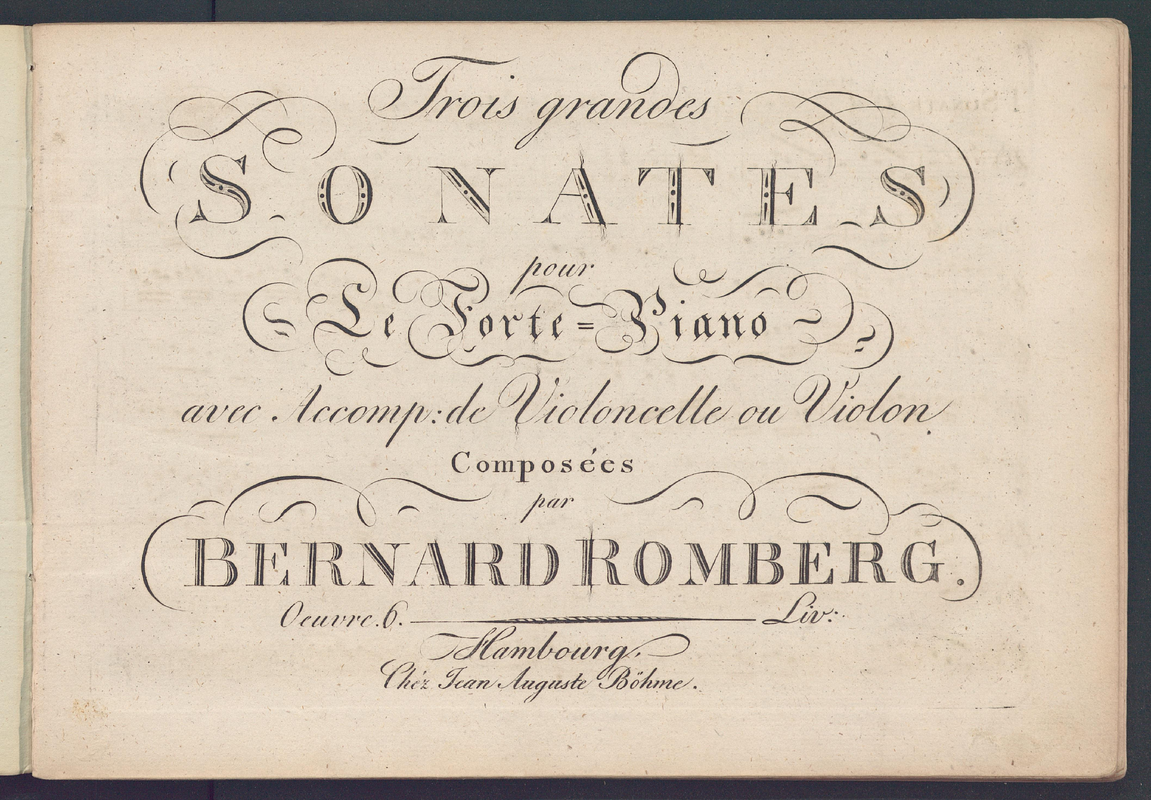 Trois grandes
SONATES
pour
Le Forte=Piano
avec Accomp: de Violoncelle ou Violon.
Composées
par
BERNARD ROMBERG.
Oeuvre. 6. Liv:
Hambourg.
Chéz Jean Auguste Böhme.